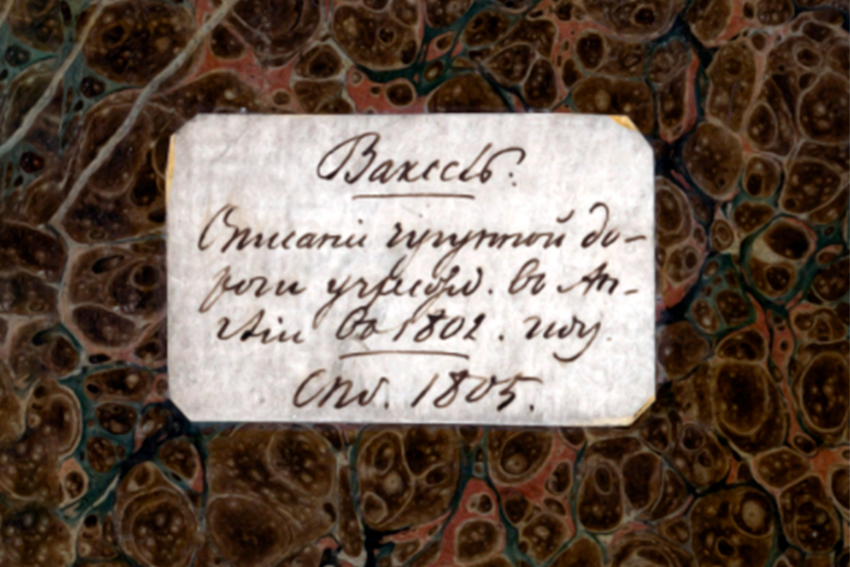 Ваксель.
Описанiе чугунной до-
роги учрежд. въ Ан-
глiи въ 1802. году.
Спб. 1805.